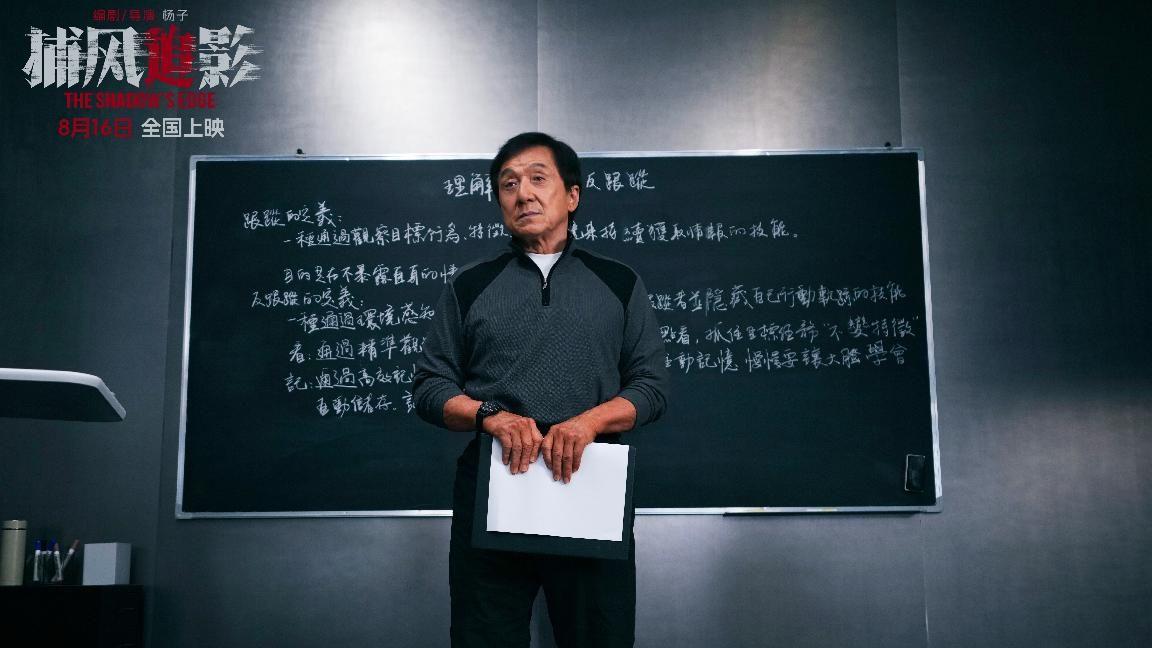 编剧/导演 杨子
捕风追影
THE SHADOW'S EDGE
8月16日 全国上映
理解 反跟蹤
跟蹤的定義：
一種通過觀察目標行為、特徵 來持續獲取情報的技能。
目的是在不暴露自身的情
反跟蹤的定義：
一種通過環境感知 跟蹤者並隱藏自己行動軌跡的技能
看：通過精準觀 點看，抓住目標經部"不變特徵"
記：通過高效記 主動記憶 慢慢要讓大腦學會
自動儲存。